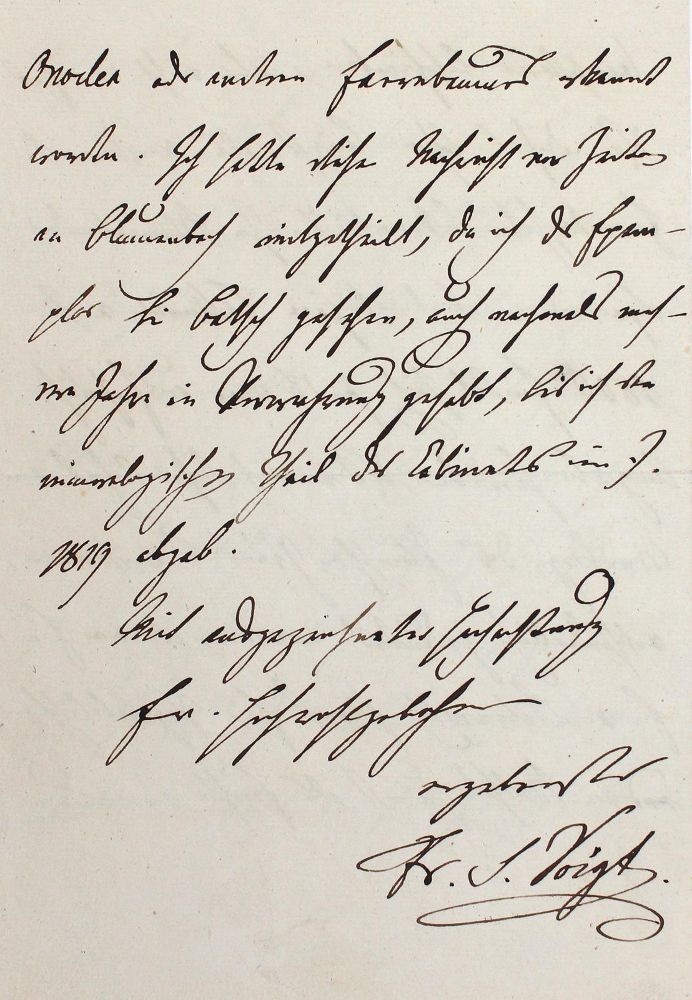 Onoclea oder andern Farrnbaumes erkannt
worden. Ich hatte diese Nachricht vor Zeiten
an Blumenbach mitgetheilt, da ich das Exem-
plar bei Batsch gesehen, auch nachmals meh-
rere Jahre in Verwahrung gehabt, bis ich den
mineralogischen Theil des Cabinets im J.
1819 abgab.
Mit ausgezeichneter Hochachtung
Ew. Hochwohlgebohren
ergebenster
Fr. S. Voigt.